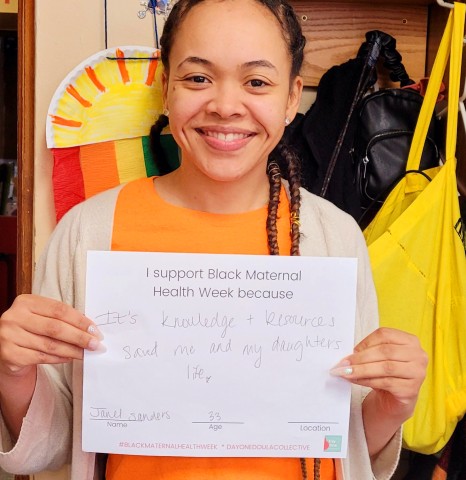 I support Black Maternal
Health Week because
It's knowledge + Resources
saved me and my daughters
life.
Janel Sanders 33
Name Age Location
#BLACKMATERNALHEALTHWEEK * DAYONEDOULACOLLECTIVE